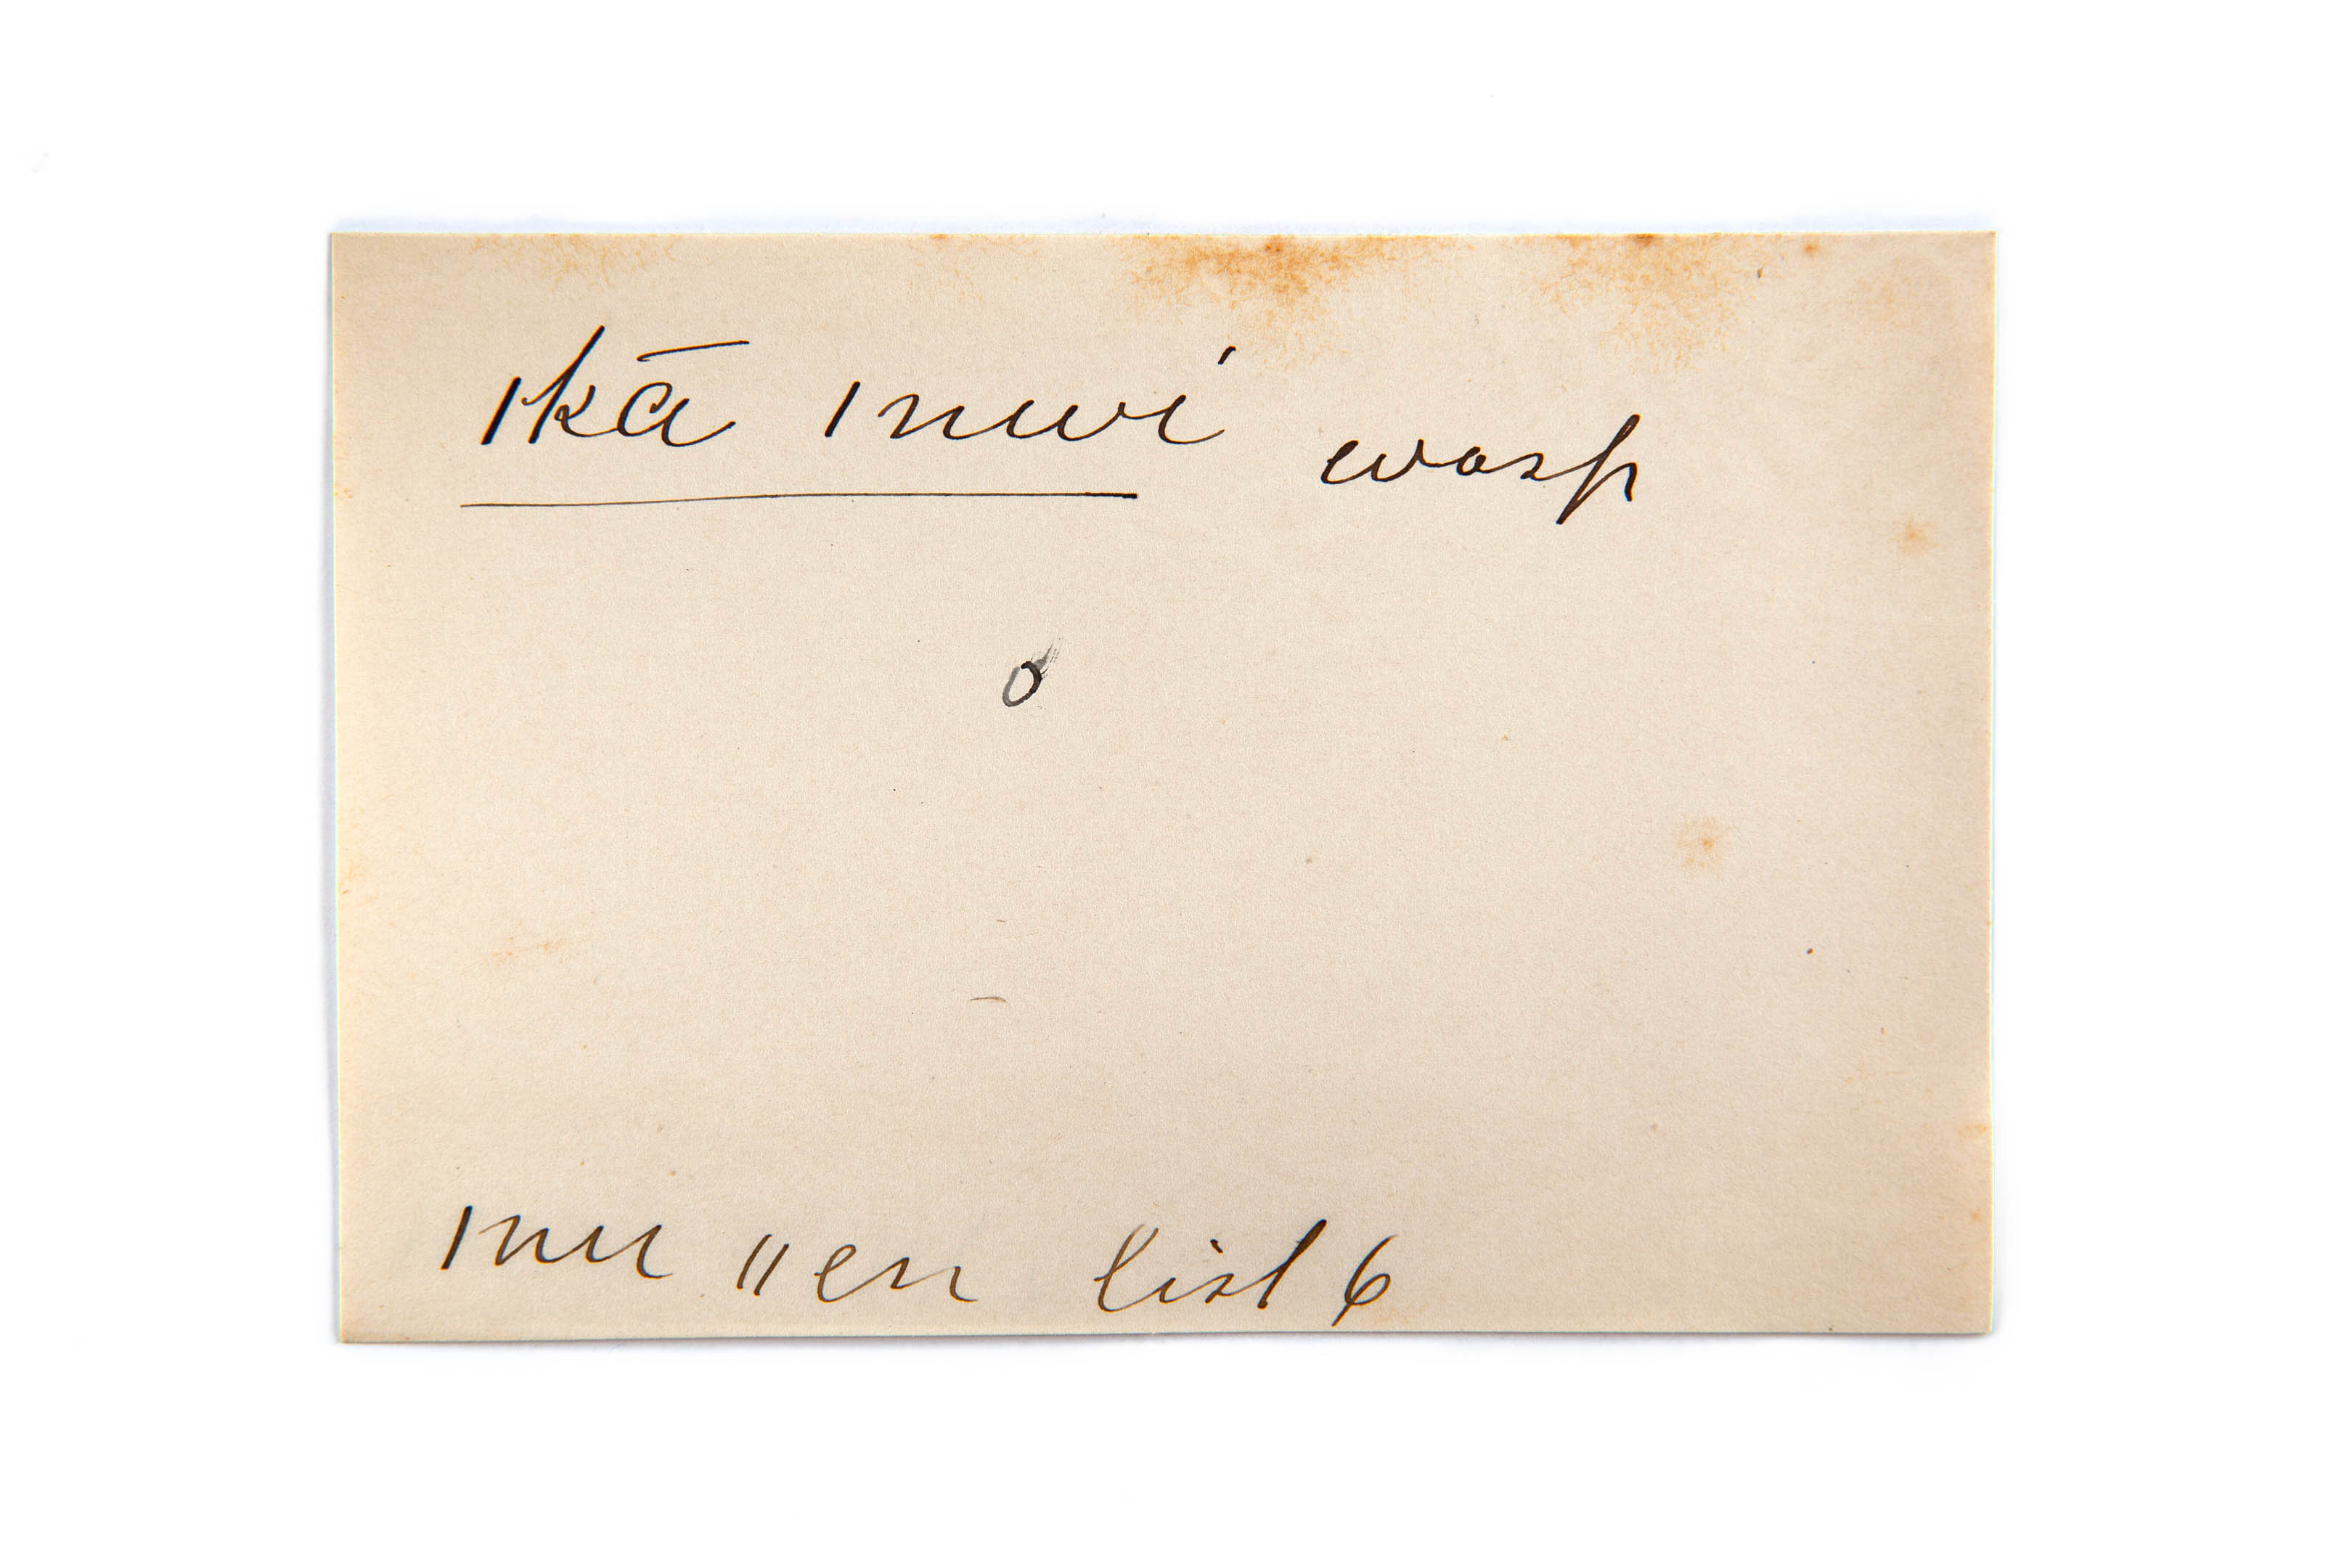 |kā |nuvi wasp
o
|nu ||en list 6